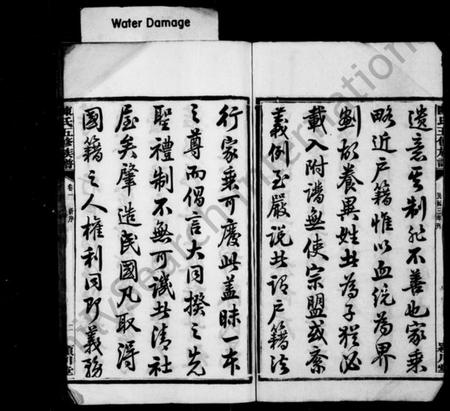 Water Damage
遺意其制非不善也家乘
略近戶籍惟以血統為界
劃故養異姓子為子猶必
載入附譜無使宗盟或紊
義例至嚴說者謂戶籍法
行家乘可廢此蓋昧一本
之尊而倡言大同揆之先
聖禮制不無可譏者清社
屋矣肇造民國凡取得
國籍之人權利同所義務